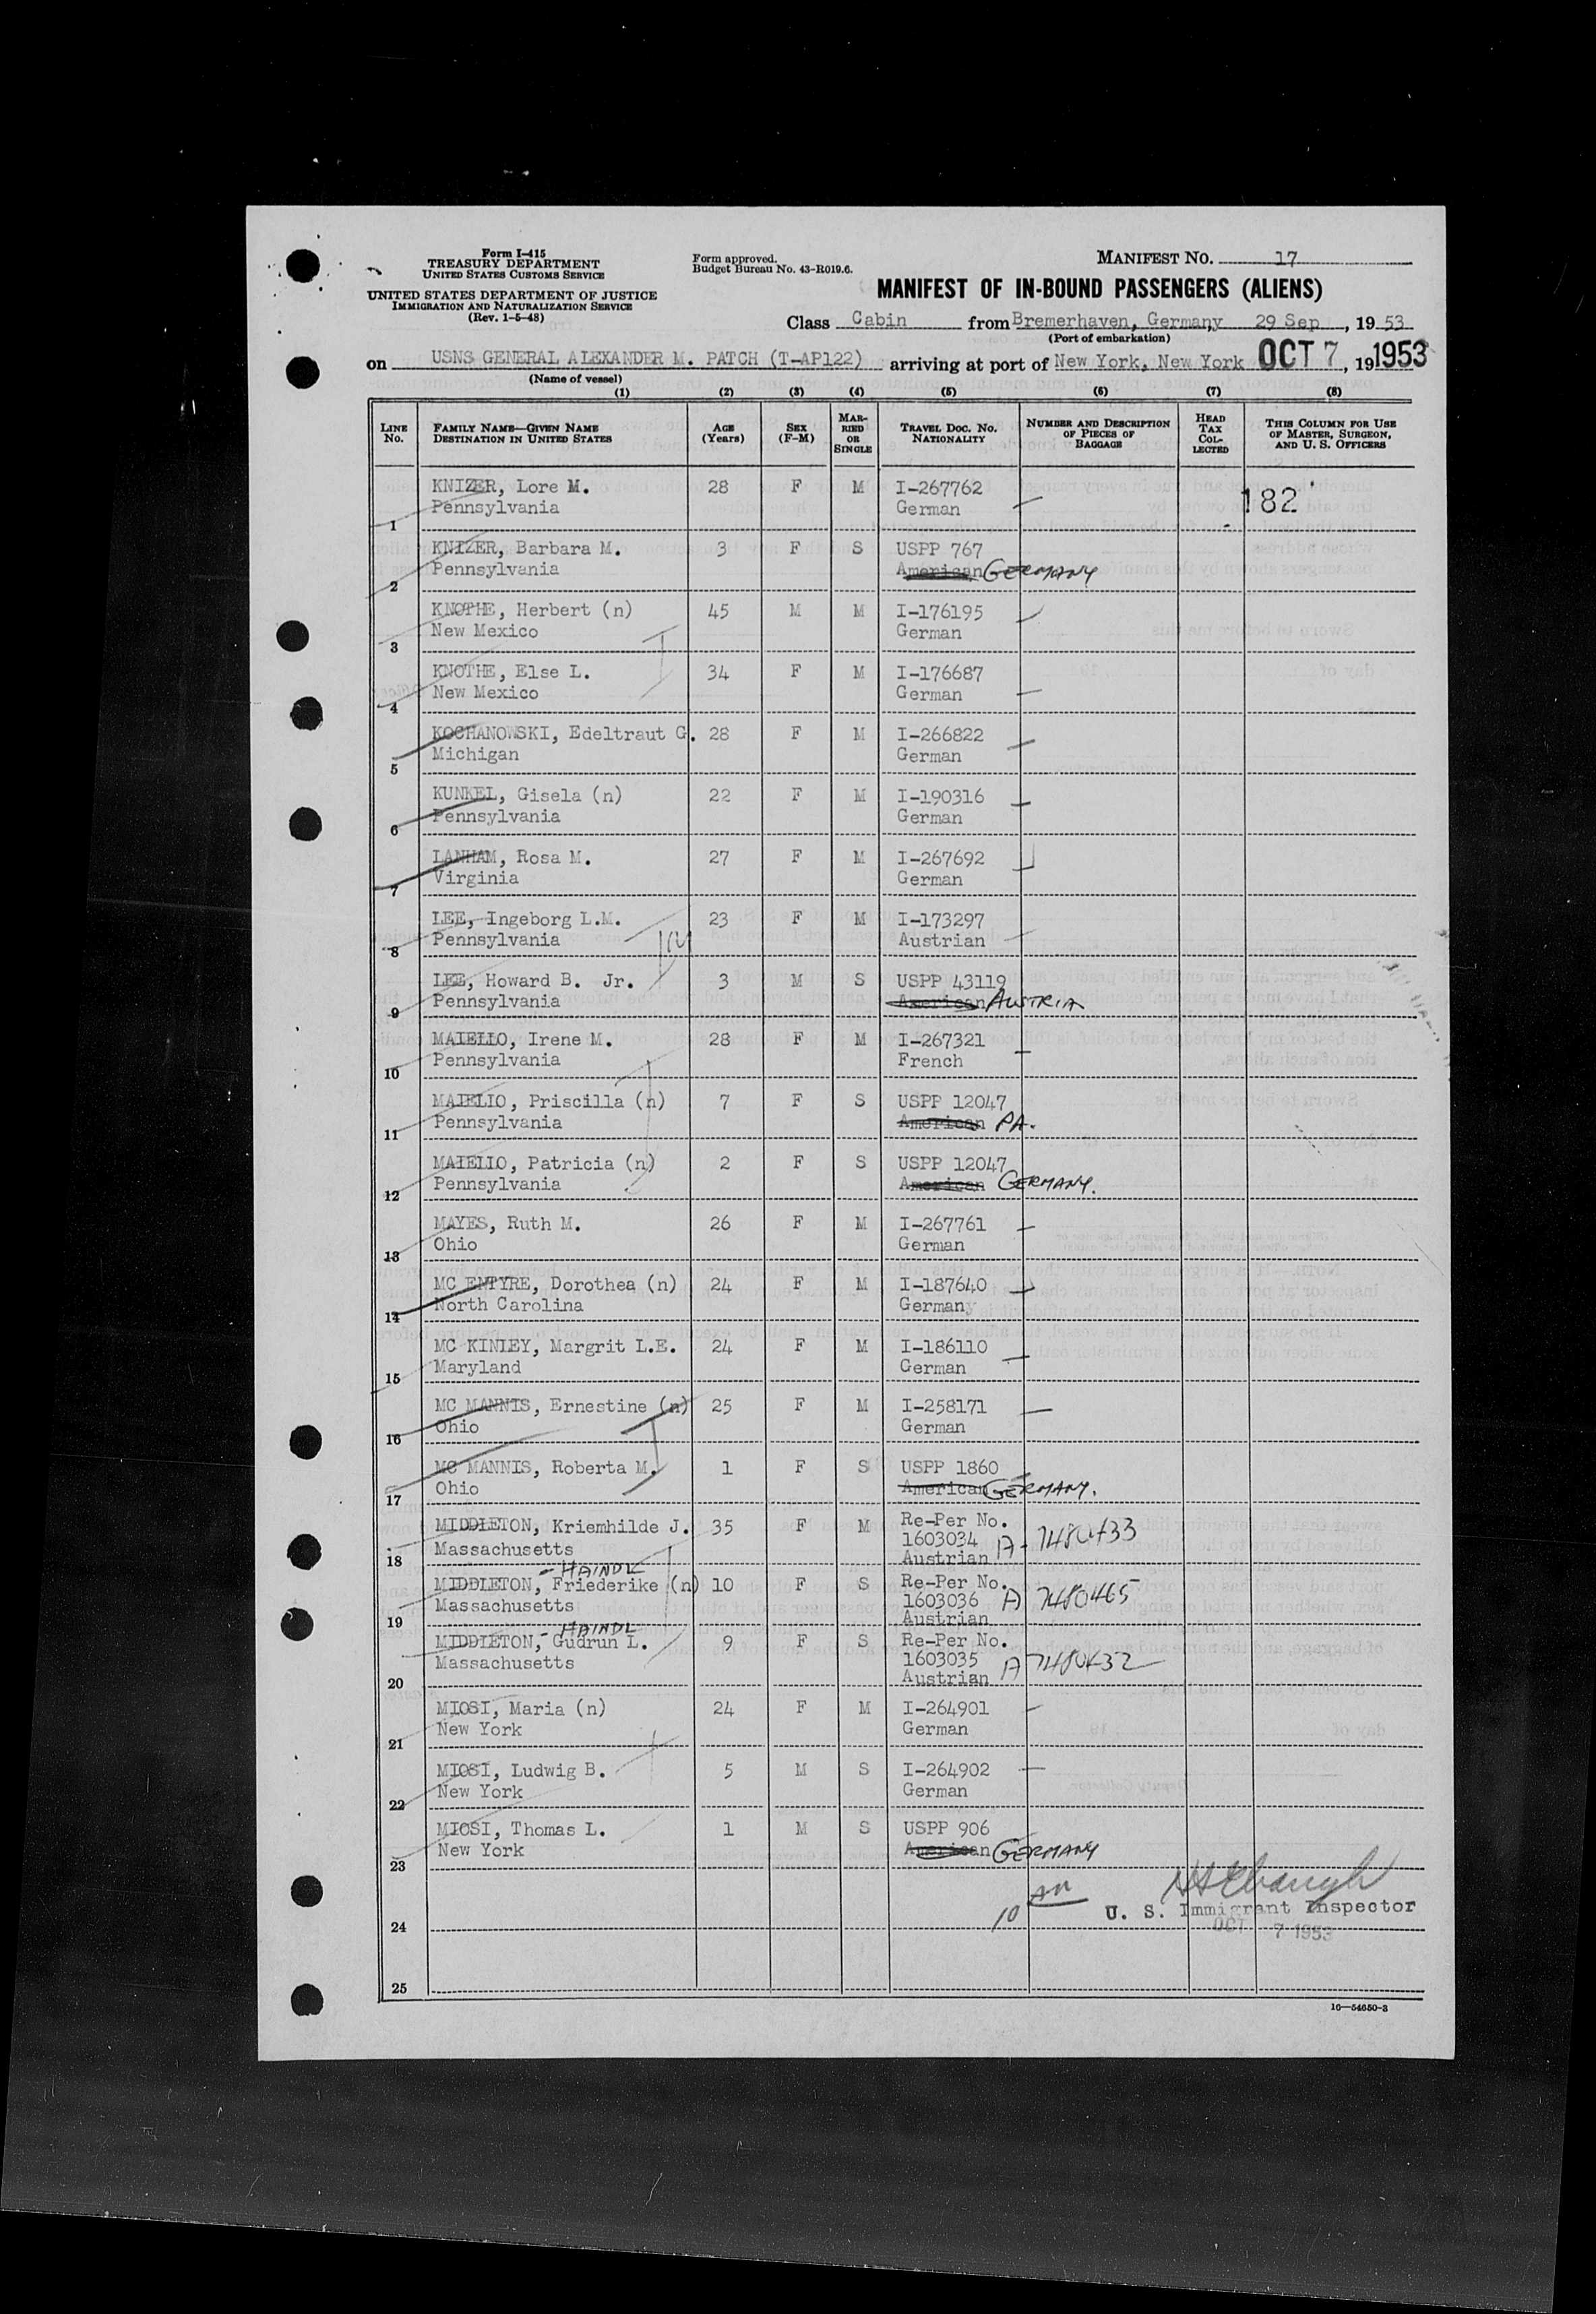 Form I-415
TREASURY DEPARTMENT
UNITED STATES CUSTOMS SERVICE
UNITED STATES DEPARTMENT OF JUSTICE
IMMIGRATION AND NATURALIZATION SERVICE
(Rev. 1-5-48)
Form approved.
Budget Bureau No. 43-R019.6.
MANIFEST NO. 17
MANIFEST OF IN-BOUND PASSENGERS (ALIENS)
Class Cabin from Bremerhaven, Germany, 29 Sep, 1953
(Port of embarkation)
on USNS GENERAL ALEXANDER M. PATCH (T-AP122) arriving at port of New York, New York OCT 7, 191953
(Name of vessel)
(1) (2) (3) (4) (5) (6) (7) (8)
LINE No. FAMILY NAME—GIVEN NAME DESTINATION IN UNITED STATES AGE (Years) SEX (F-M) MARRIED OR SINGLE TRAVEL DOC. NO. NATIONALITY NUMBER AND DESCRIPTION OF PIECES OF BAGGAGE HEAD TAX COLLECTED THIS COLUMN FOR USE OF MASTER, SURGEON, AND U. S. OFFICERS
KNIZER, Lore M. 28 F M I-267762 182
1 Pennsylvania German
KNIZER, Barbara M. 3 F S USPP 767
2 Pennsylvania American GERMANY
KNOTHE, Herbert (n) 45 M M I-176195
3 New Mexico German
KNOTHE, Else L. 34 F M I-176687
4 New Mexico German
KOCHANOWSKI, Edeltraut G. 28 F M I-266822
5 Michigan German
KUNKEL, Gisela (n) 22 F M I-190316
6 Pennsylvania German
LANHAM, Rosa M. 27 F M I-267692
7 Virginia German
LEE, Ingeborg L.M. 23 F M I-173297
8 Pennsylvania Austrian
LEE, Howard B. Jr. 3 M S USPP 43119
9 Pennsylvania American AUSTRIA
MAIELLO, Irene M. 28 F M I-267321
10 Pennsylvania French
MAIELIO, Priscilla (n) 7 F S USPP 12047
11 Pennsylvania American PA.
MAIELIO, Patricia (n) 2 F S USPP 12047
12 Pennsylvania American GERMANY.
MAYES, Ruth M. 26 F M I-267761
13 Ohio German
MC ENTYRE, Dorothea (n) 24 F M I-187640
14 North Carolina Germany
MC KINLEY, Margrit L.E. 24 F M I-186110
15 Maryland German
MC MANNIS, Ernestine (n) 25 F M I-258171
16 Ohio German
MC MANNIS, Roberta M. 1 F S USPP 1860
17 Ohio American GERMANY.
MIDDLETON, Kriemhilde J. 35 F M Re-Per No.
18 Massachusetts 1603034 A-7480433
Austrian
- HAINDL
MIDDLETON, Friederike (n) 10 F S Re-Per No.
19 Massachusetts 1603036 A 7480465
Austrian
- HAINDL
MIDDLETON, Gudrun L. 9 F S Re-Per No.
20 Massachusetts 1603035 A 7480432
Austrian
MIOSI, Maria (n) 24 F M I-264901
21 New York German
MIOSI, Ludwig B. 5 M S I-264902
22 New York German
MIOSI, Thomas L. 1 M S USPP 906
23 New York American GERMANY
10 AM
U. S. Immigrant Inspector
24 OCT 7 1953
25
16—54650-3